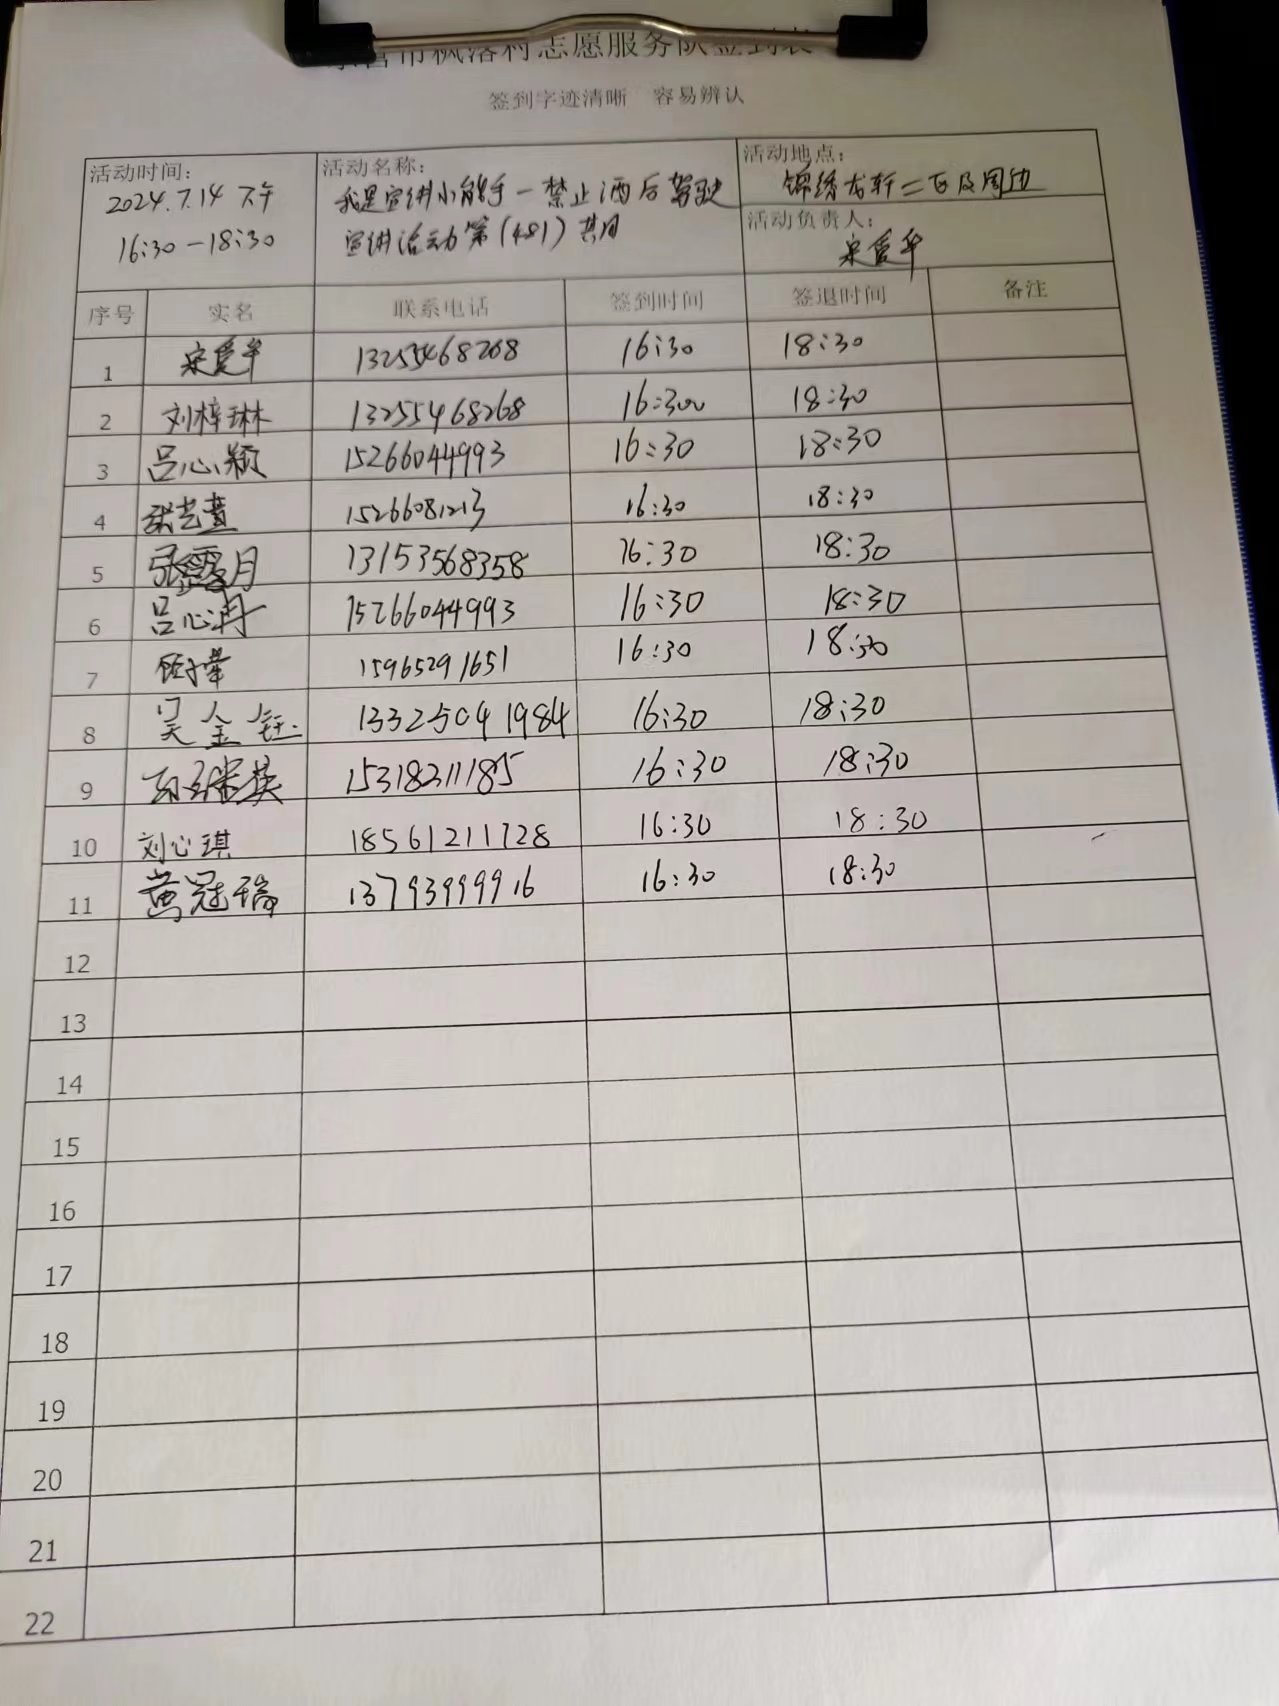 东营市枫洛利志愿服务队签到表
签到字迹清晰 容易辨认
活动时间：
2024.7.14 下午
16:30-18:30
活动名称：
我是宣讲小能手-禁止酒后驾驶
宣讲活动第(481)共同
活动地点：
锦绣龙轩二百及周边
活动负责人：
宋爱华
序号 实名 联系电话 签到时间 签退时间 备注
1 宋爱华 13255468268 16:30 18:30
2 刘梓琳 13255468268 16:30 18:30
3 吕心颖 15266044993 16:30 18:30
4 张艺萱 15266081213 16:30 18:30
5 张露月 13153568358 16:30 18:30
6 吕心冉 15266044993 16:30 18:30
7 15965291651 16:30 18:30
8 吴金钰 13325041984 16:30 18:30
9 15318211185 16:30 18:30
10 刘心琪 18561211728 16:30 18:30
11 黄冠瑞 13793999916 16:30 18:30
12
13
14
15
16
17
18
19
20
21
22